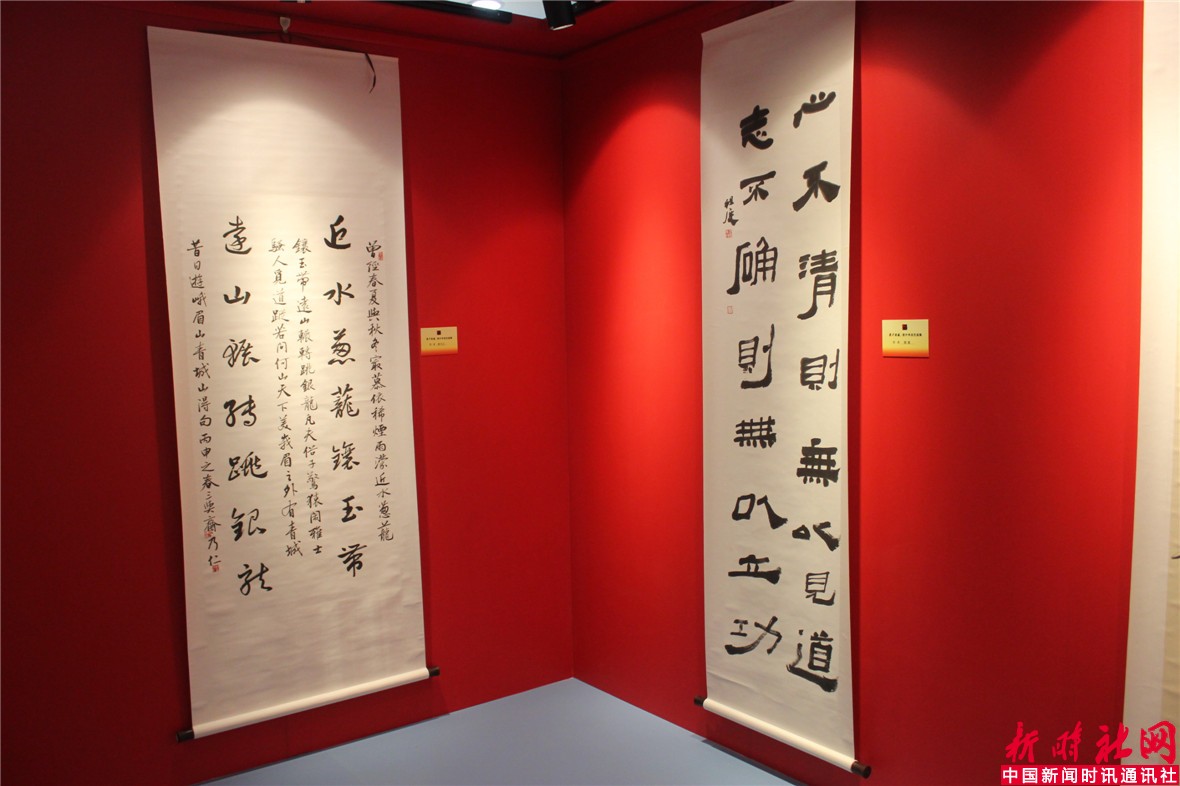 曾經春夏與秋冬寂慕依稀煙雨濛近水蔥蘢
近水蔥蘢鑲玉帶
鑲玉帶遠山輾轉跳銀龍凡夫俗子驚猿閙雅士
騷人覓道蹤若問何山天下美峩眉之外有青城
遠山輾轉跳銀龍
昔日遊峨眉山青城山得句丙申之春三
齋乃仁
心不清則無以見道
志不确則無以立功
新时社网
中国新闻时讯通讯社